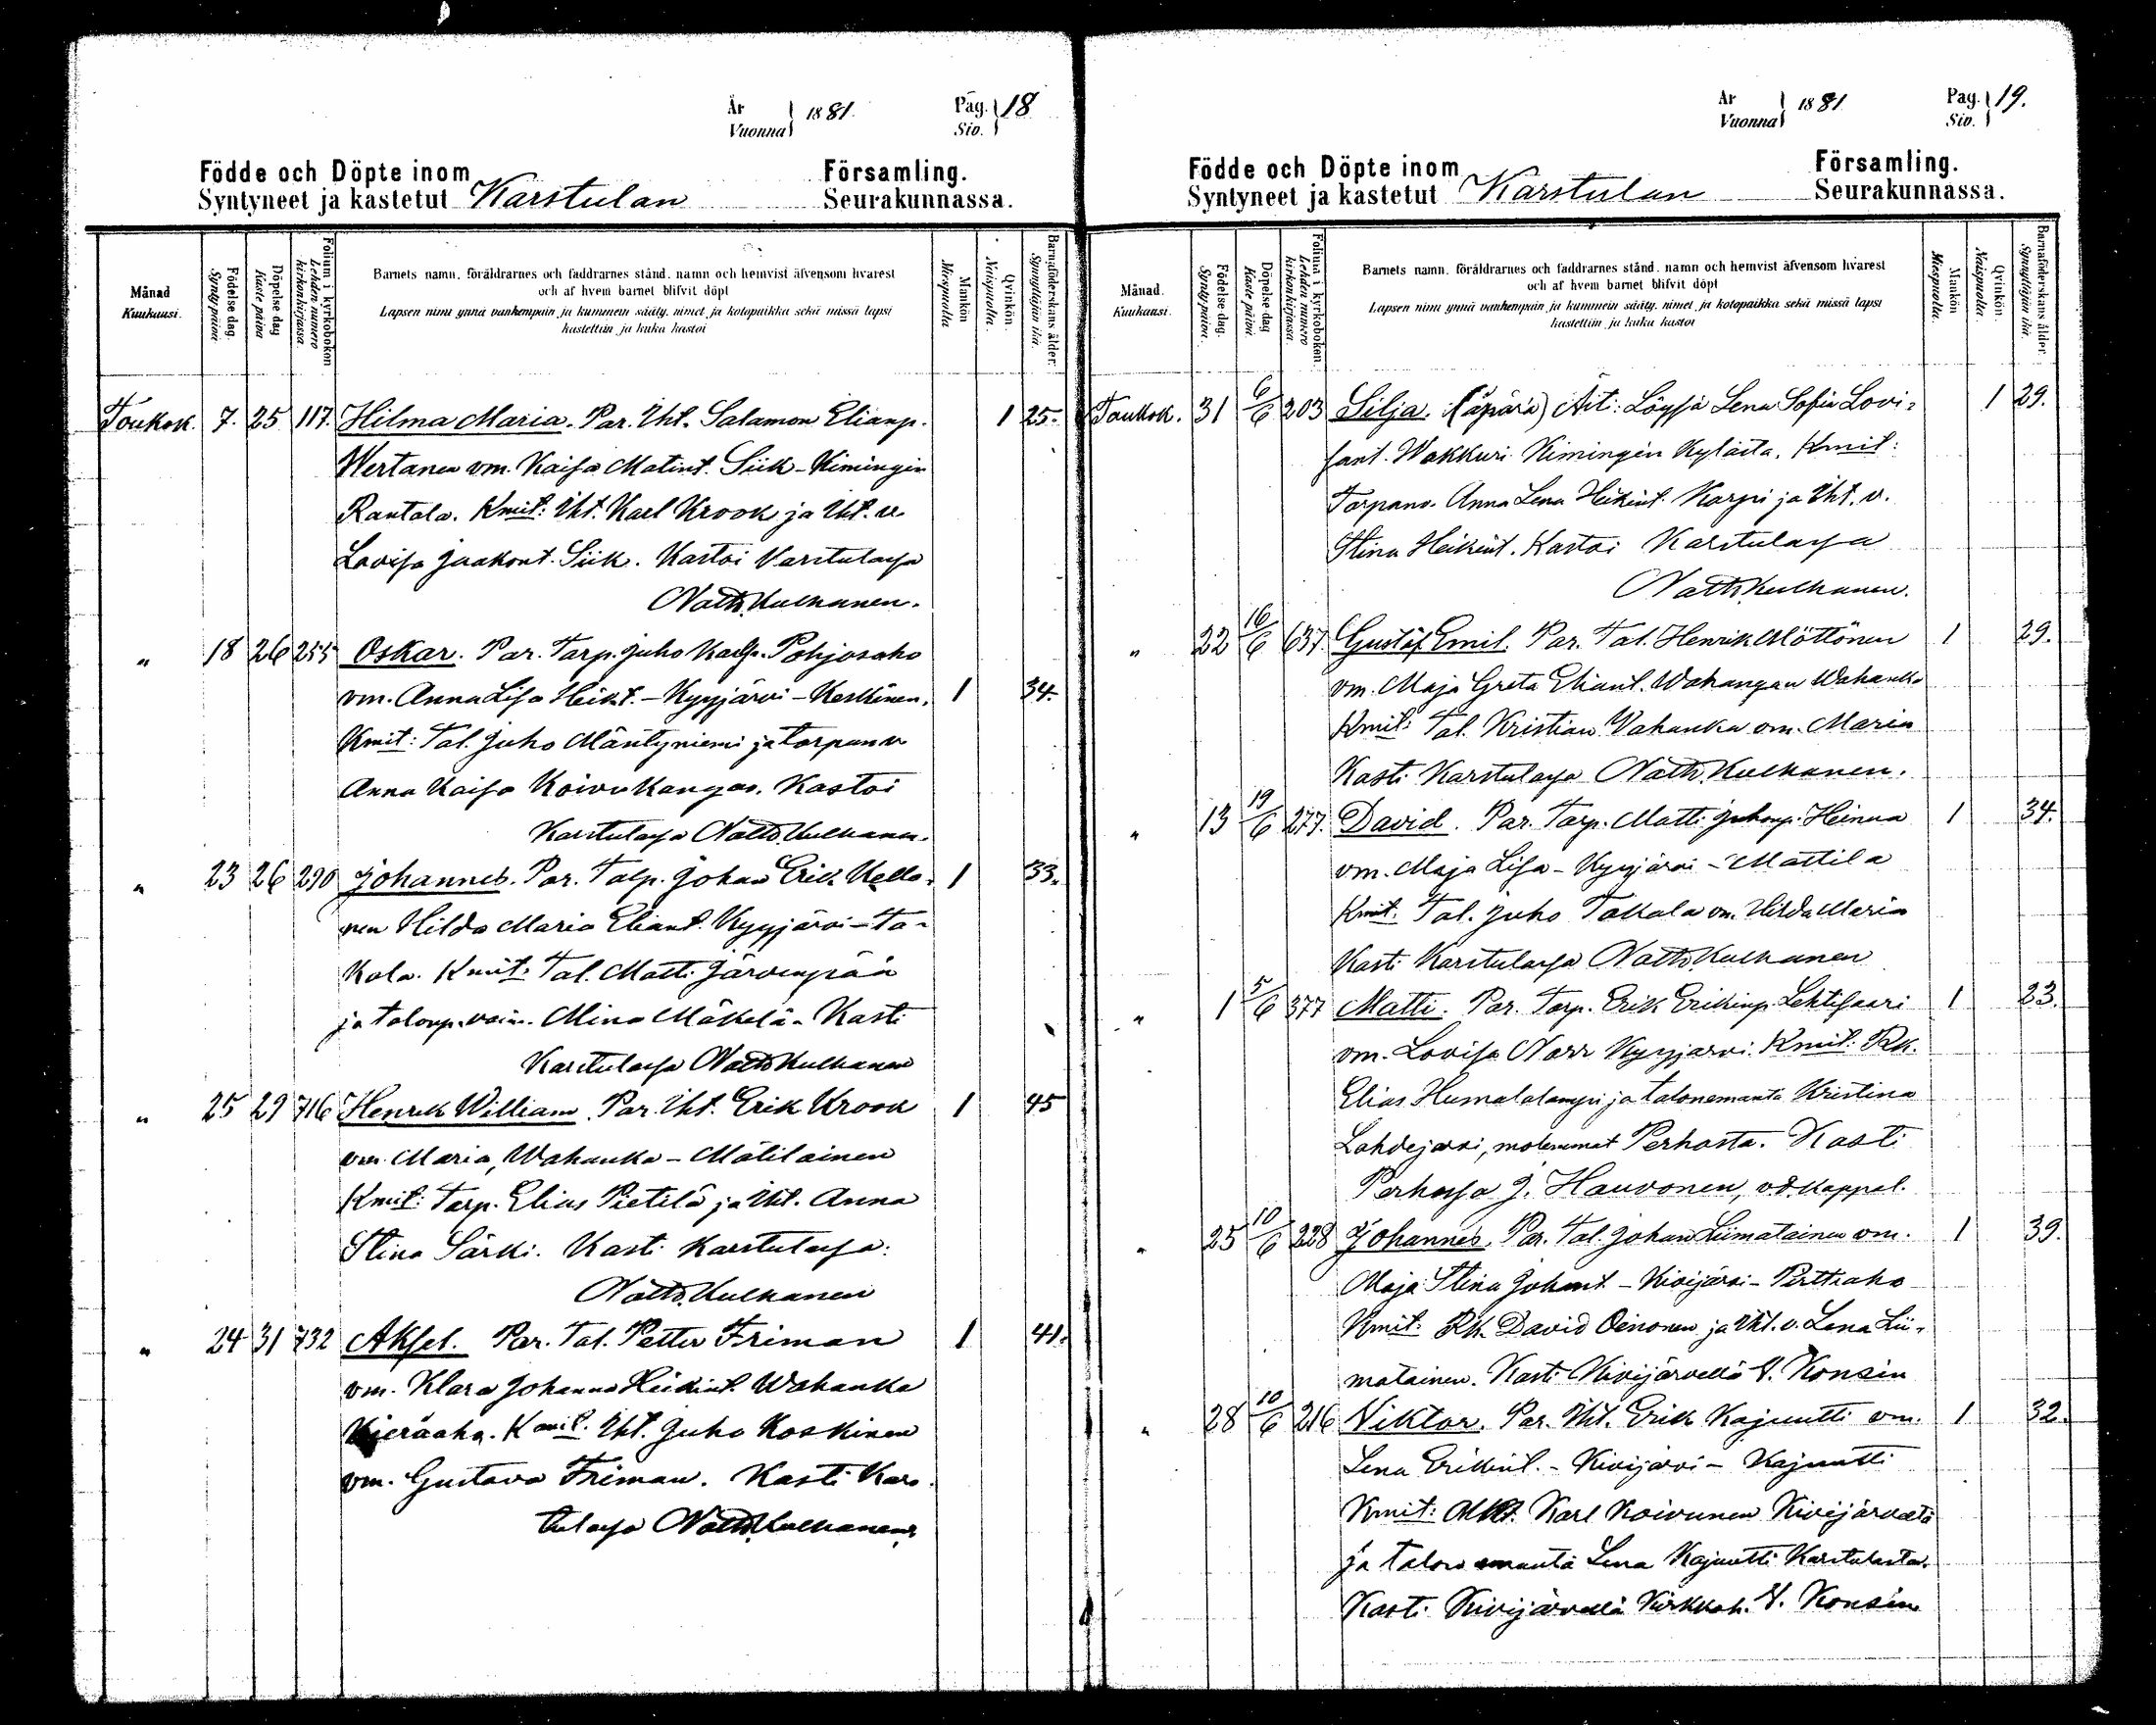 År
Vuonna } 1881. Pag.
Siv. } 18
Födde och Döpte inom Församling.
Syntyneet ja kastetut Karstulan Seurakunnassa.
Månad
Kuukausi.
Födelse dag.
Synty päivä
Döpelse dag
Kaste päivä
Folium i kyrkoboken
Lehden numero
kirkonkirjassa.
Barnets namn. föräldrarnes och faddrarnes stånd. namn och hemvist äfvensom hvarest
och af hvem barnet blifvit döpt
Lapsen nimi ynnä vanhempain ja kummein sääty. nimet ja kotopaikka sekä missä lapsi
kastettiin ja kuka kastoi
Mankön
Miespuolta
Qvinkön.
Naispuolta.
Barnaföderskans ålder.
Synnyttäjän ikä.
Toukok. 7. 25 117. Hilma Maria. Par. Iht. Salamon Elianp. 1 25.
Wertanen vm. Kaisa Matint. Siik - Kimingin
Rantala. Kmit: Iht. Karl Krook ja Iht. v.
Lovisa Jaakont. Siik. Kastoi Karstulassa
Natth. Kulhanen.
" 18 26 255 Oskar. Par. Tarp. Juho Kallp. Pohjosaho
vm. Anna Lisa Heikt. - Kyyjärvi - Keskinen. 1 34.
Kmit: Tal. Juho Mäntyniemi ja torpan v
Anna Kaisa Koivukangas. Kastoi
Karstulassa Natth. Kulhanen.
" 23 26 290 Johannes. Par. Talp. Johan Erik Kello- 1 33.
nen Hilda Maria Eliant. Kyyjärvi - Ta-
kala. Kmit: Tal. Matti Järvenpää
ja talonp. vaim. Mina Mäkelä - Kasti
Karstulassa Natth. Kulhanen
" 25 29 716 Henrik William. Par. Iht. Erik Krook 1 45
vm. Maria, Wahanka - Mätilainen
Kmit: Tarp. Elias Pietilä ja Iht. Anna
Stina Särki. Kasti Karstulassa:
Natth. Kulhanen
" 24 31 732 Aksel. Par. Tal. Petter Friman 1 41.
vm. Klara Johanna Heikint. Wahanka
Kieräaho. Kmit. Iht. Juho Koskinen
vm. Gustava Friman. Kasti Kars-
tulassa Natth. Kulhanen.
År
Vuonna } 1881 Pag.
Siv. } 19.
Födde och Döpte inom Församling.
Syntyneet ja kastetut Karstulan Seurakunnassa.
Månad.
Kuukausi.
Födelse dag.
Synty päivä.
Döpelse dag
Kaste päivä.
Folium i kyrkoboken.
Lehden numero
kirkonkirjassa.
Barnets namn. föräldrarnes och faddrarnes stånd. namn och hemvist äfvensom hvarest
och af hvem barnet blifvit döpt
Lapsen nimi ynnä vanhempain ja kummein sääty. nimet ja kotopaikka sekä missä lapsi
kastettiin ja kuka kastoi
Mankön
Miespuolta.
Qvinkön.
Naispuolta.
Barnaföderskans ålder.
Synnyttäjän ikä.
Toukok. 31 6/6 203 Silja. (äpärä) Äiti: Löysjä Lena Sofia Lovi- 1 29.
sant. Wakkuri Kimingin Kylästä. Kmit:
Torpanv. Anna Lena Heikint. Karpi ja Iht. v.
Stina Heikint. Kastoi Karstulassa
Natth. Kulhanen.
" 22 16/6 637. Gustaf Emil. Par. Tal. Henrik Möttönen 1 29.
vm. Maja Greta Eliant. Wahangan Wahanka
Kmit: Tal. Kristian Wahanka vm. Maria
Kasti Karstulassa Natth. Kulhanen.
" 13 19/6 277. David. Par. Tarp. Matti Juhonp. Heinua 1 34.
vm. Maja Lisa - Kyyjärvi - Mattila
Kmit. Tal. Juho Takala vm. Hilda Maria
Kasti Karstulassa Natth. Kulhanen
" 1 5/6 377 Matti. Par. Tarp. Erik Erikinp. Lehtisaari 1 23.
vm. Lovisa Norr Kyyjärvi. Kmit: Rk.
Elias Humalalampi ja talonemäntä Kristina
Lahdejärvi, molemmat Perhosta. Kasti
Perhossa J. Hauvonen, v.d. kappal.
" 25 10/6 228 Johannes. Par. Tal. Johan Liimatainen vm. 1 39.
Maja Stina Johant - Kivijärvi - Perttiaho
Kmit: Rk. David Oinonen ja Iht. v. Lena Lii-
matainen. Kasti Kivijärvellä V. Konsin
" 28 10/6 216 Viktor. Par. Iht. Erik Kajuutti vm. 1 32.
Lena Erikint. - Kivijärvi - Kajuutti
Kmit: Karl Koivunen Kivijärveltä
ja talon emäntä Lena Kajuutti Karstulasta.
Kasti Kivijärvellä Kirkkoh. V. Konsin